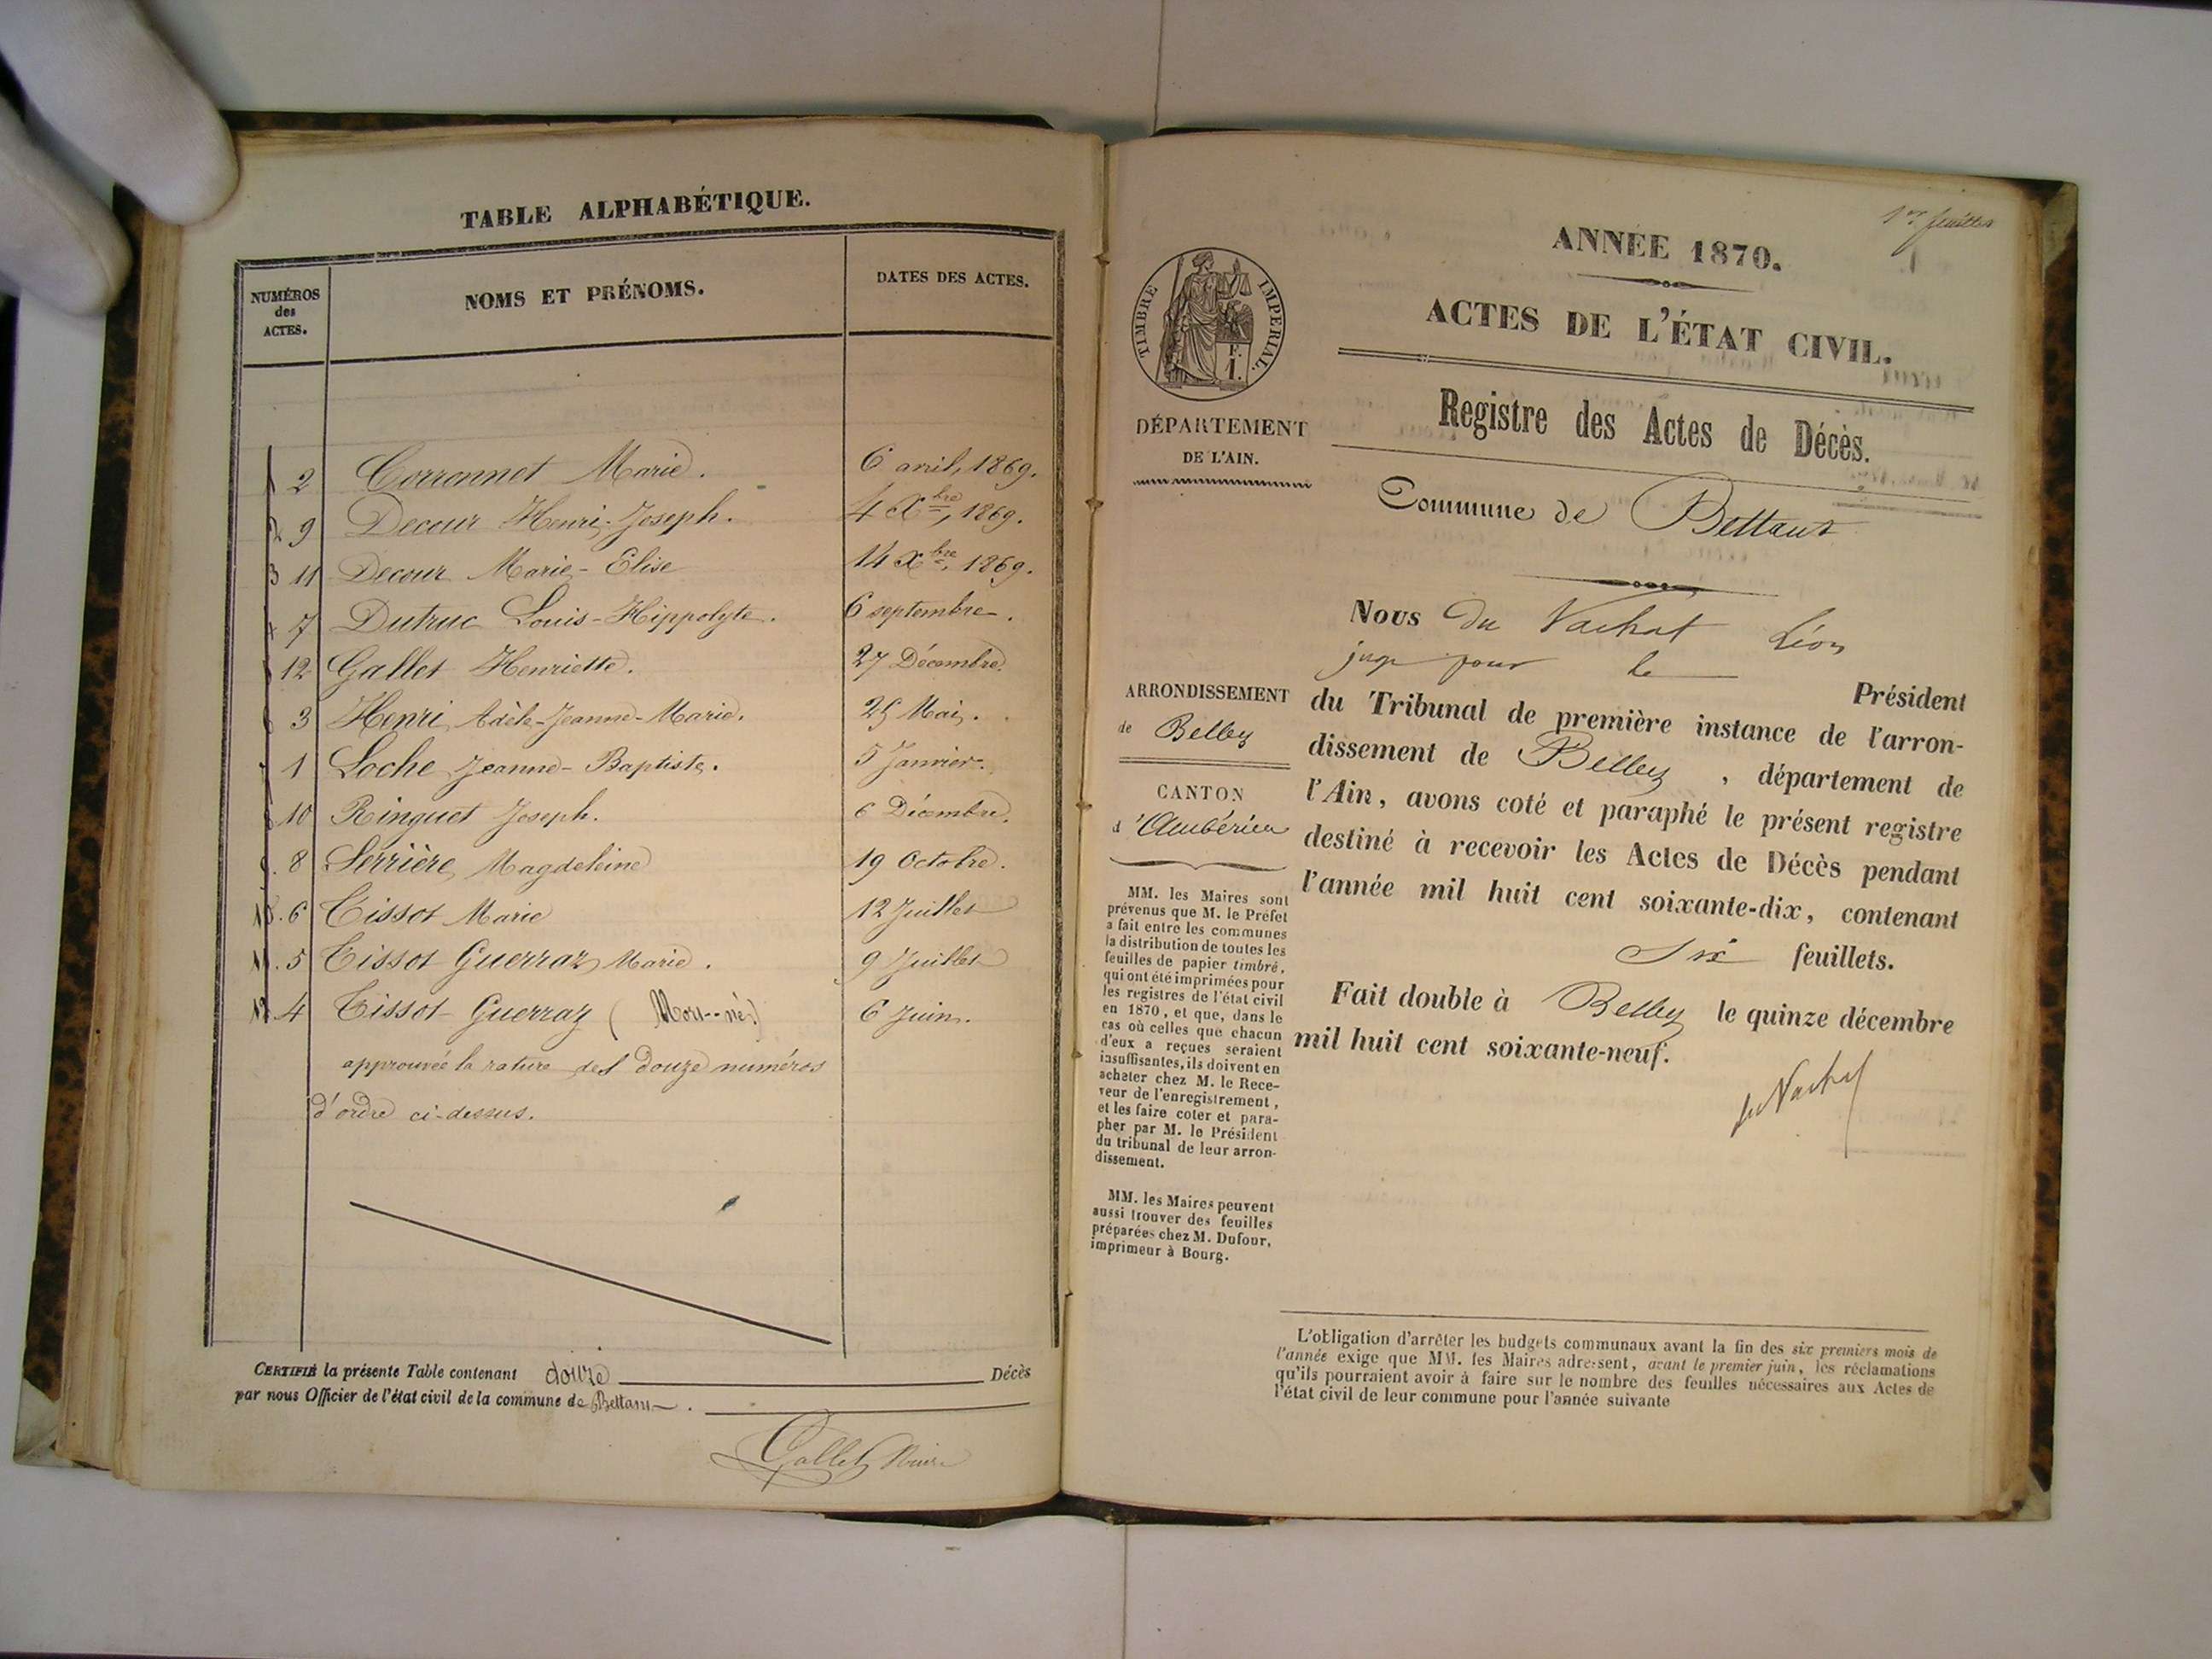 TABLE ALPHABÉTIQUE.
NUMÉROS des ACTES. NOMS ET PRÉNOMS. DATES DES ACTES.
2 Corronnet Marie. 6 avril, 1869.
9 Decour Henri-Joseph. 4 Xbre, 1869.
3 11 Decour Marie-Elise 14 Xbre, 1869.
7 Dutruc Louis-Hippolyte. 6 septembre.
12 Gallet Henriette. 27 Décembre.
3 Henri Adèle-Jeanne-Marie. 25 Mai.
1 Loche Jeanne-Baptiste. 5 Janvier.
10 Ringuet Joseph. 6 Décembre.
8 Serrière Magdeleine 19 Octobre.
6 Tissot Marie 12 Juillet
11. 5 Tissot Guerraz Marie. 9 Juillet
12 4 Tissot Guerraz (Mort-né) 6 Juin.
approuvée la rature des douze numéros
d'ordre ci-dessus.
CERTIFIÉ la présente Table contenant douze Décès
par nous Officier de l'état civil de la commune de Bettant.
Gallet Maire
1er feuillet
ANNÉE 1870.
ACTES DE L'ÉTAT CIVIL.
Registre des Actes de Décès.
Commune de Bettant
TIMBRE IMPERIAL.
F.
1.
DÉPARTEMENT
DE L'AIN.
ARRONDISSEMENT
de Belley
CANTON
d'Ambérieu
MM. les Maires sont
prévenus que M. le Préfet
a fait entre les communes
la distribution de toutes les
feuilles de papier timbré,
qui ont été imprimées pour
les registres de l'état civil
en 1870, et que, dans le
cas où celles que chacun
d'eux a reçues seraient
insuffisantes, ils doivent en
acheter chez M. le Rece-
veur de l'enregistrement,
et les faire coter et para-
pher par M. le Président
du tribunal de leur arron-
dissement.
MM. les Maires peuvent
aussi trouver des feuilles
préparées chez M. Dufour,
imprimeur à Bourg.
Nous du Vachat Léon
juge pour le Président
du Tribunal de première instance de l'arron-
dissement de Belley, département de
l'Ain, avons coté et paraphé le présent registre
destiné à recevoir les Actes de Décès pendant
l'année mil huit cent soixante-dix, contenant
Six feuillets.
Fait double à Belley le quinze décembre
mil huit cent soixante-neuf.
du Vachat
L'obligation d'arrêter les budgets communaux avant la fin des six premiers mois de
l'année exige que MM. les Maires adressent, avant le premier juin, les réclamations
qu'ils pourraient avoir à faire sur le nombre des feuilles nécessaires aux Actes de
l'état civil de leur commune pour l'année suivante